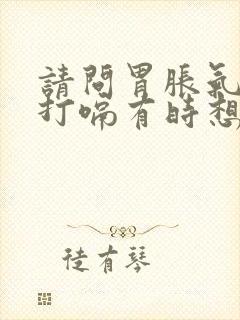 請問胃脹氣
打嗝有時想
徒有琴